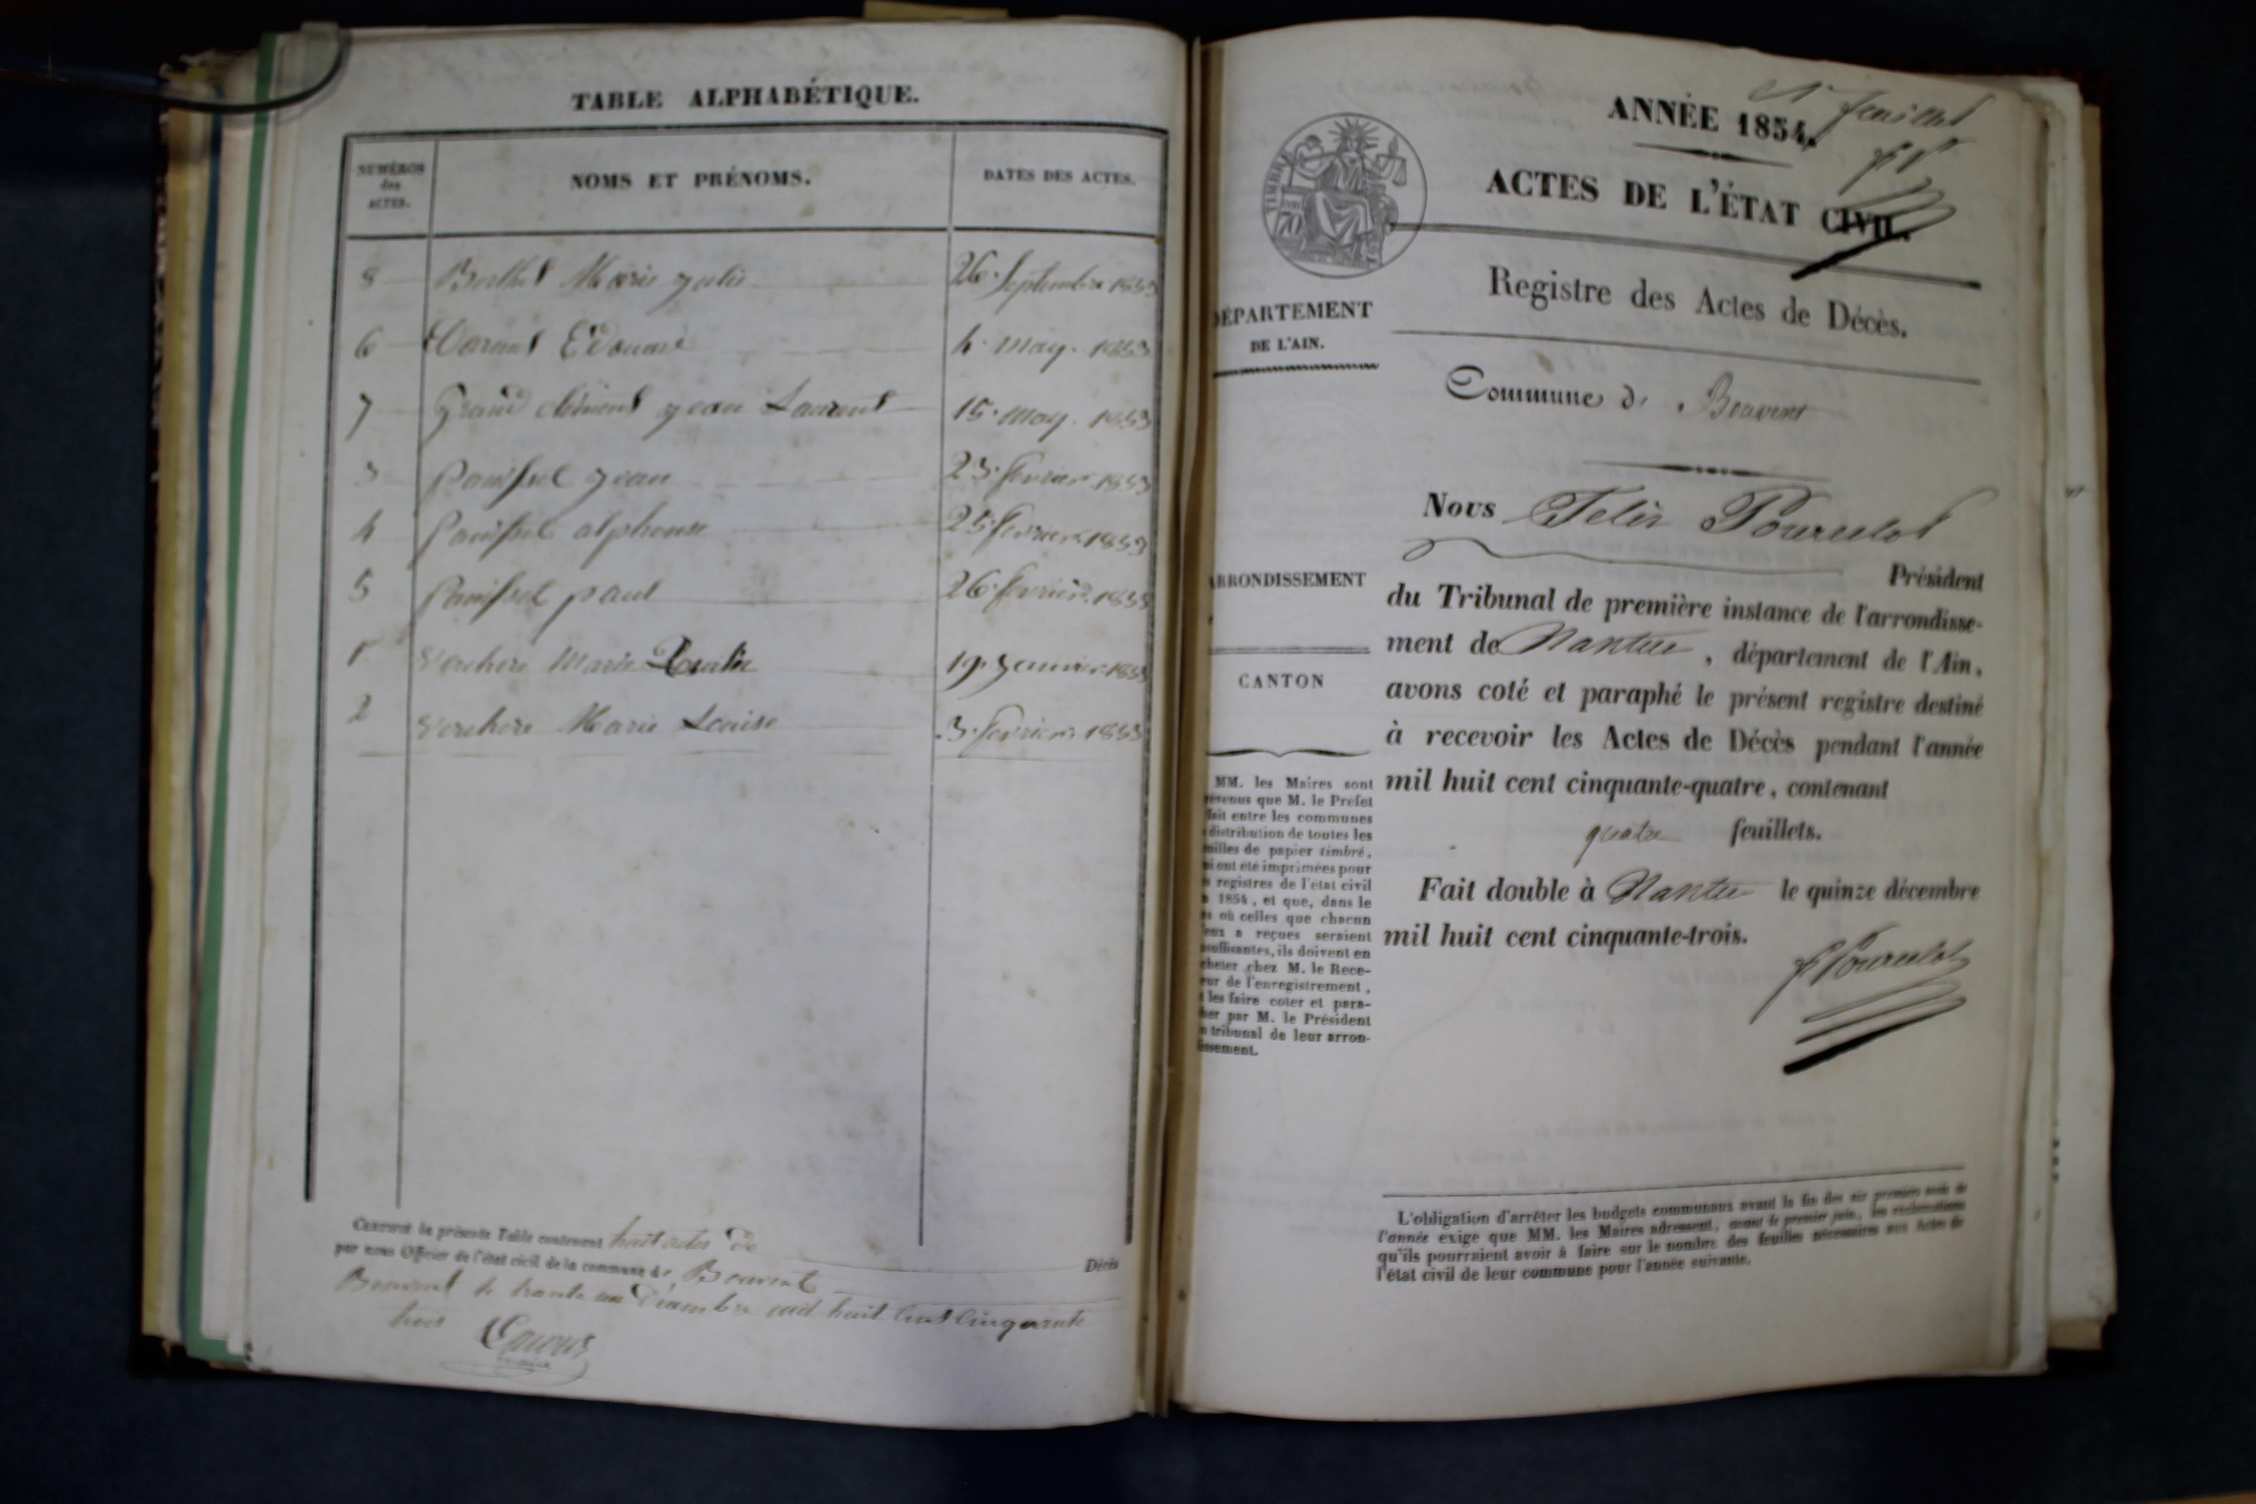 TABLE ALPHABÉTIQUE.
NUMÉROS
des
ACTES.
NOMS ET PRÉNOMS.
DATES DES ACTES.
8 Berthet Marie Julie 26. Septembre 1853
6 Edouard 4. may. 1853
7 Grand clément jean Laurent 15. May. 1853
3 Panisset jean 23. fevrier 1853
4 Panisset alphonse 25 fevrier 1853
5 Panisset paul 26. fevrier. 1853
1 Verchere Marie 19. Janvier 1853
2 Verchere Marie Louise 3. fevrier 1853
CERTIFIÉ la présente Table contenant huit actes de Décès
par nous Officier de l'état civil de la commune de Bouvent
Bouvent le trente un Décembre mil huit Cent Cinquante
trois
1er feuillet
ANNÉE 1854.
ACTES DE L'ÉTAT CIVIL.
TIMBRE
70
Registre des Actes de Décès.
DÉPARTEMENT
DE L'AIN.
Commune de Bouvent
ARRONDISSEMENT
CANTON
Nous Félix Pourcelot
Président
du Tribunal de première instance de l'arrondisse-
ment de Nantua, département de l'Ain,
avons coté et paraphé le présent registre destiné
à recevoir les Actes de Décès pendant l'année
mil huit cent cinquante-quatre, contenant
quatre feuillets.
Fait double à Nantua le quinze décembre
mil huit cent cinquante-trois.
F Pourcelot
MM. les Maires sont
prévenus que M. le Préfet
fait entre les communes
distribution de toutes les
feuilles de papier timbré,
qui ont été imprimées pour
registres de l'état civil
1854, et que, dans le
où celles que chacun
eux a reçues seraient
insuffisantes, ils doivent en
acheter chez M. le Rece-
veur de l'enregistrement,
les faire coter et para-
pher par M. le Président
tribunal de leur arron-
dissement.
L'obligation d'arrêter les budgets communaux avant la fin des six premiers mois de
l'année exige que MM. les Maires adressent, avant le premier juin, les réclamations
qu'ils pourraient avoir à faire sur le nombre des feuilles nécessaires aux Actes de
l'état civil de leur commune pour l'année suivante.